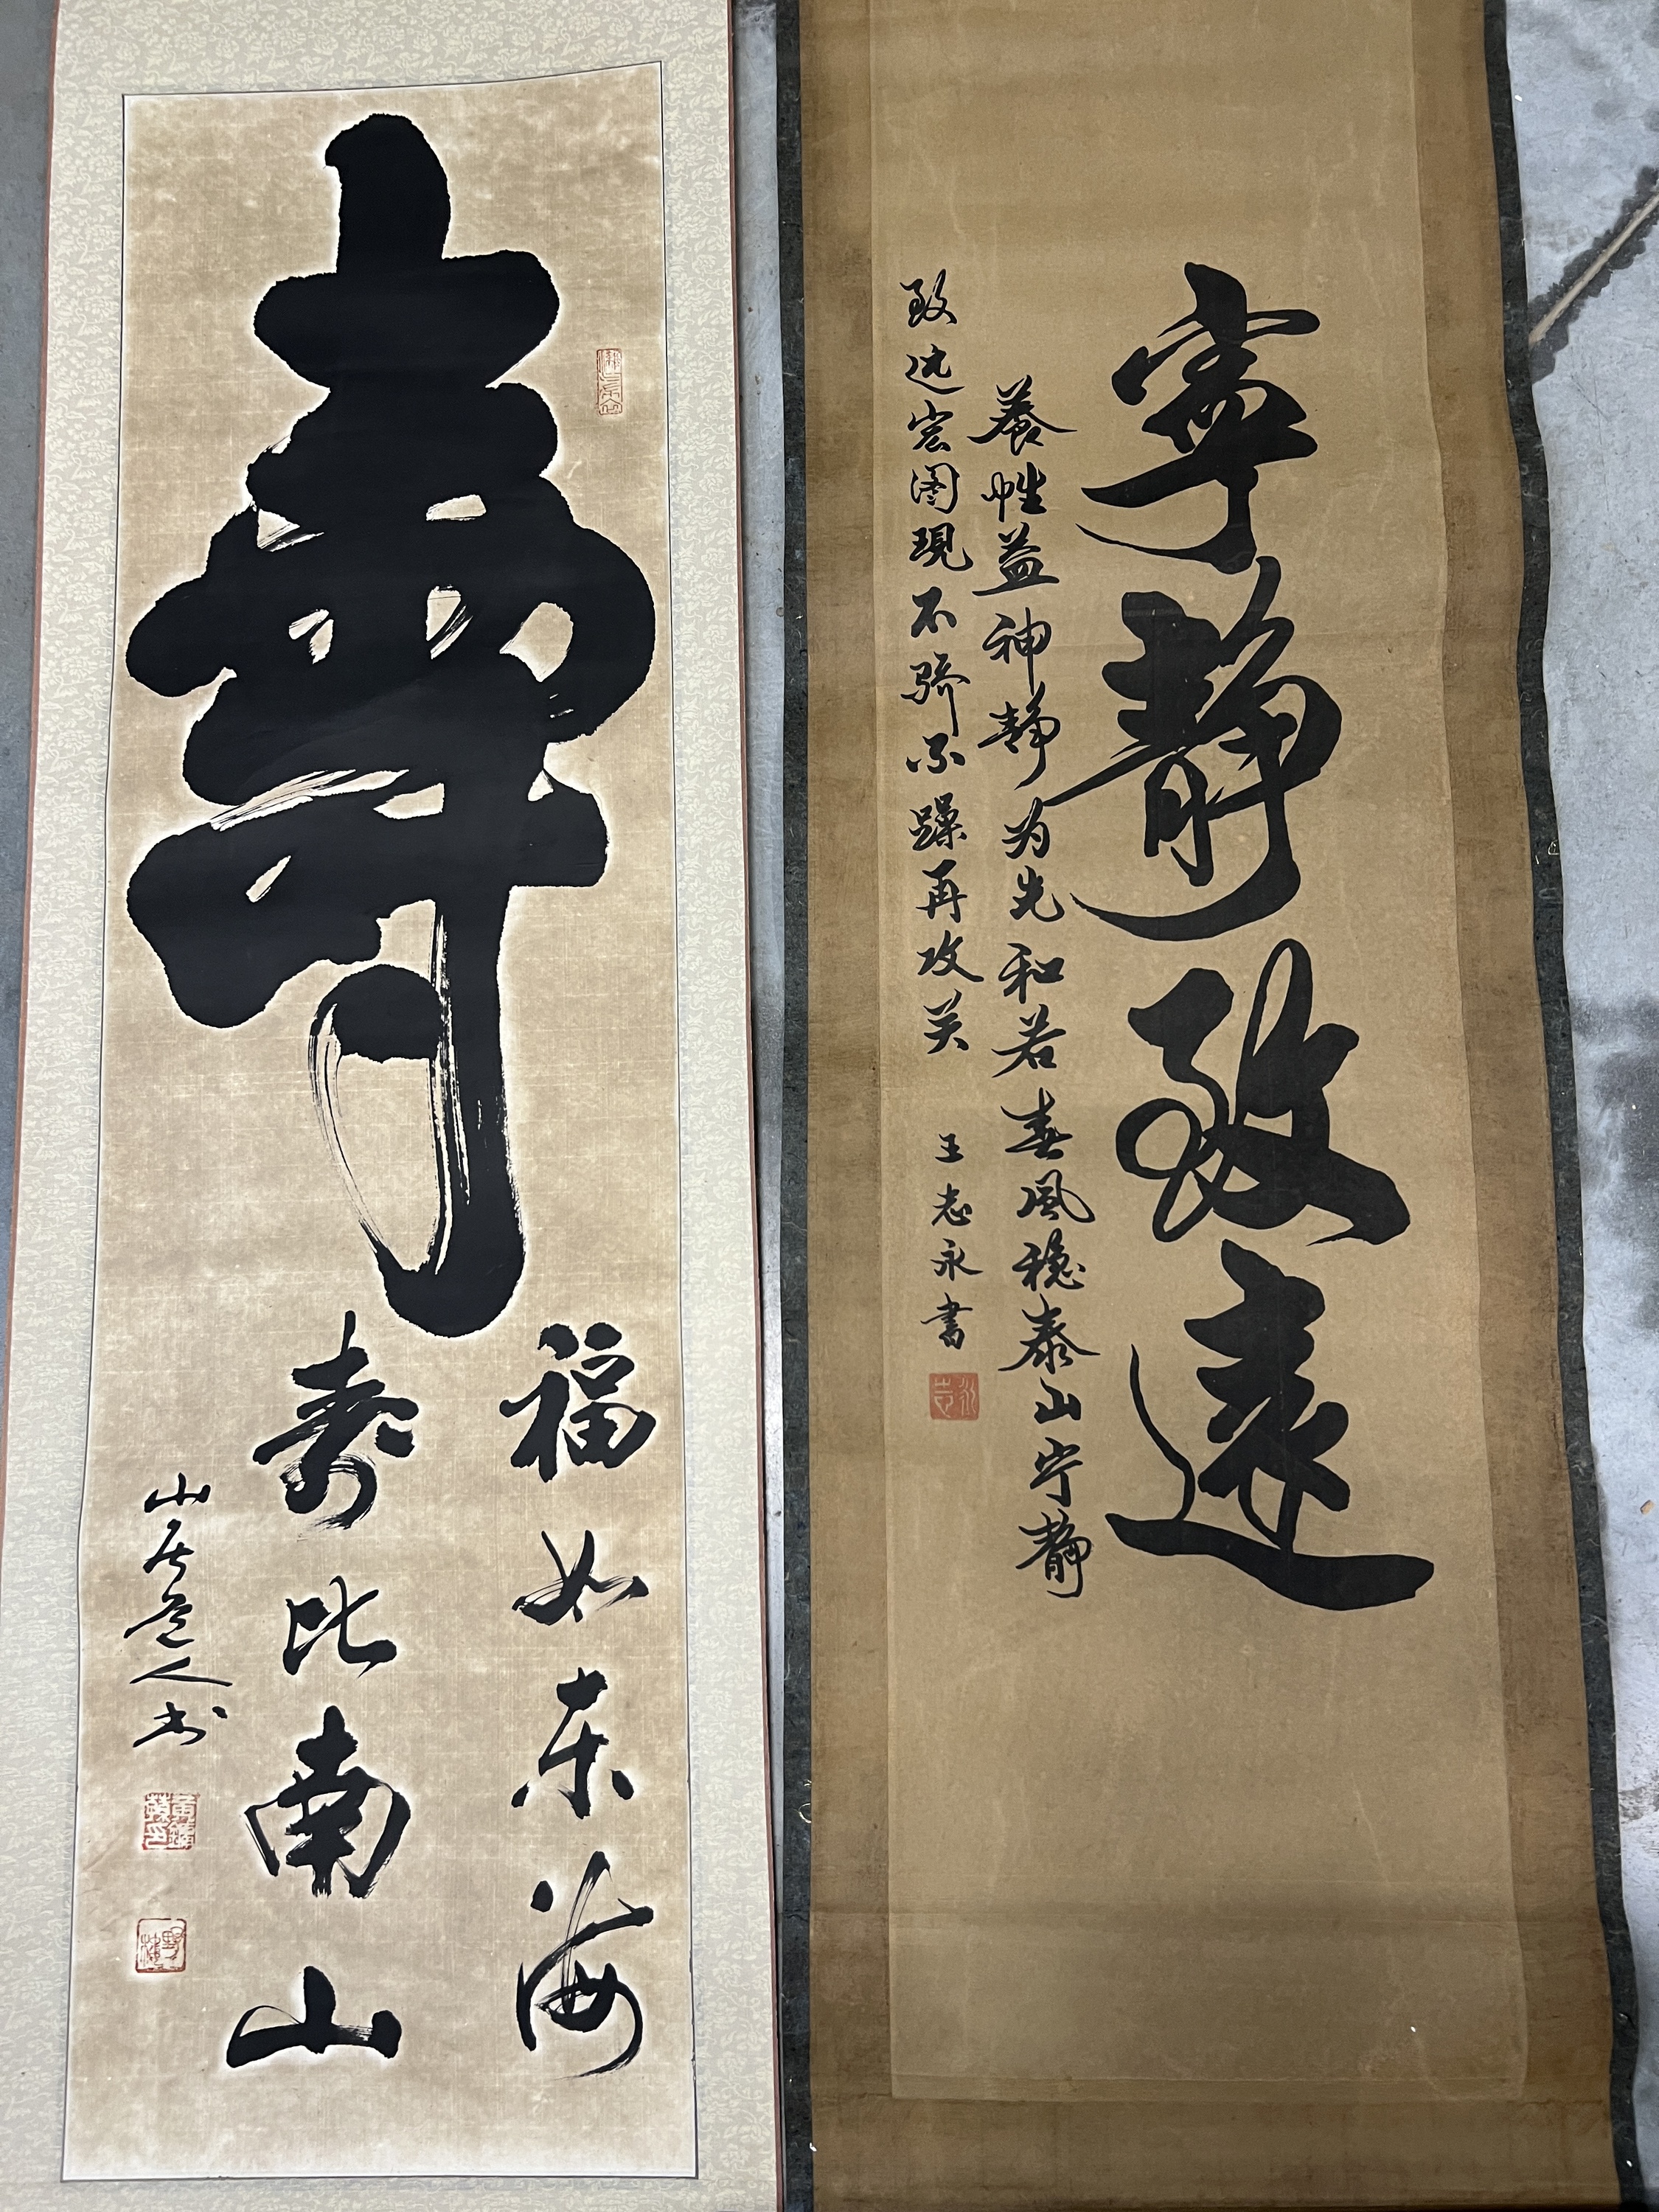 壽
福如东海
寿比南山
山居道人书
寧靜致遠
養性益神静为先和若春风稳泰山宁静
致远宏图现不骄不躁再攻关
王志永書